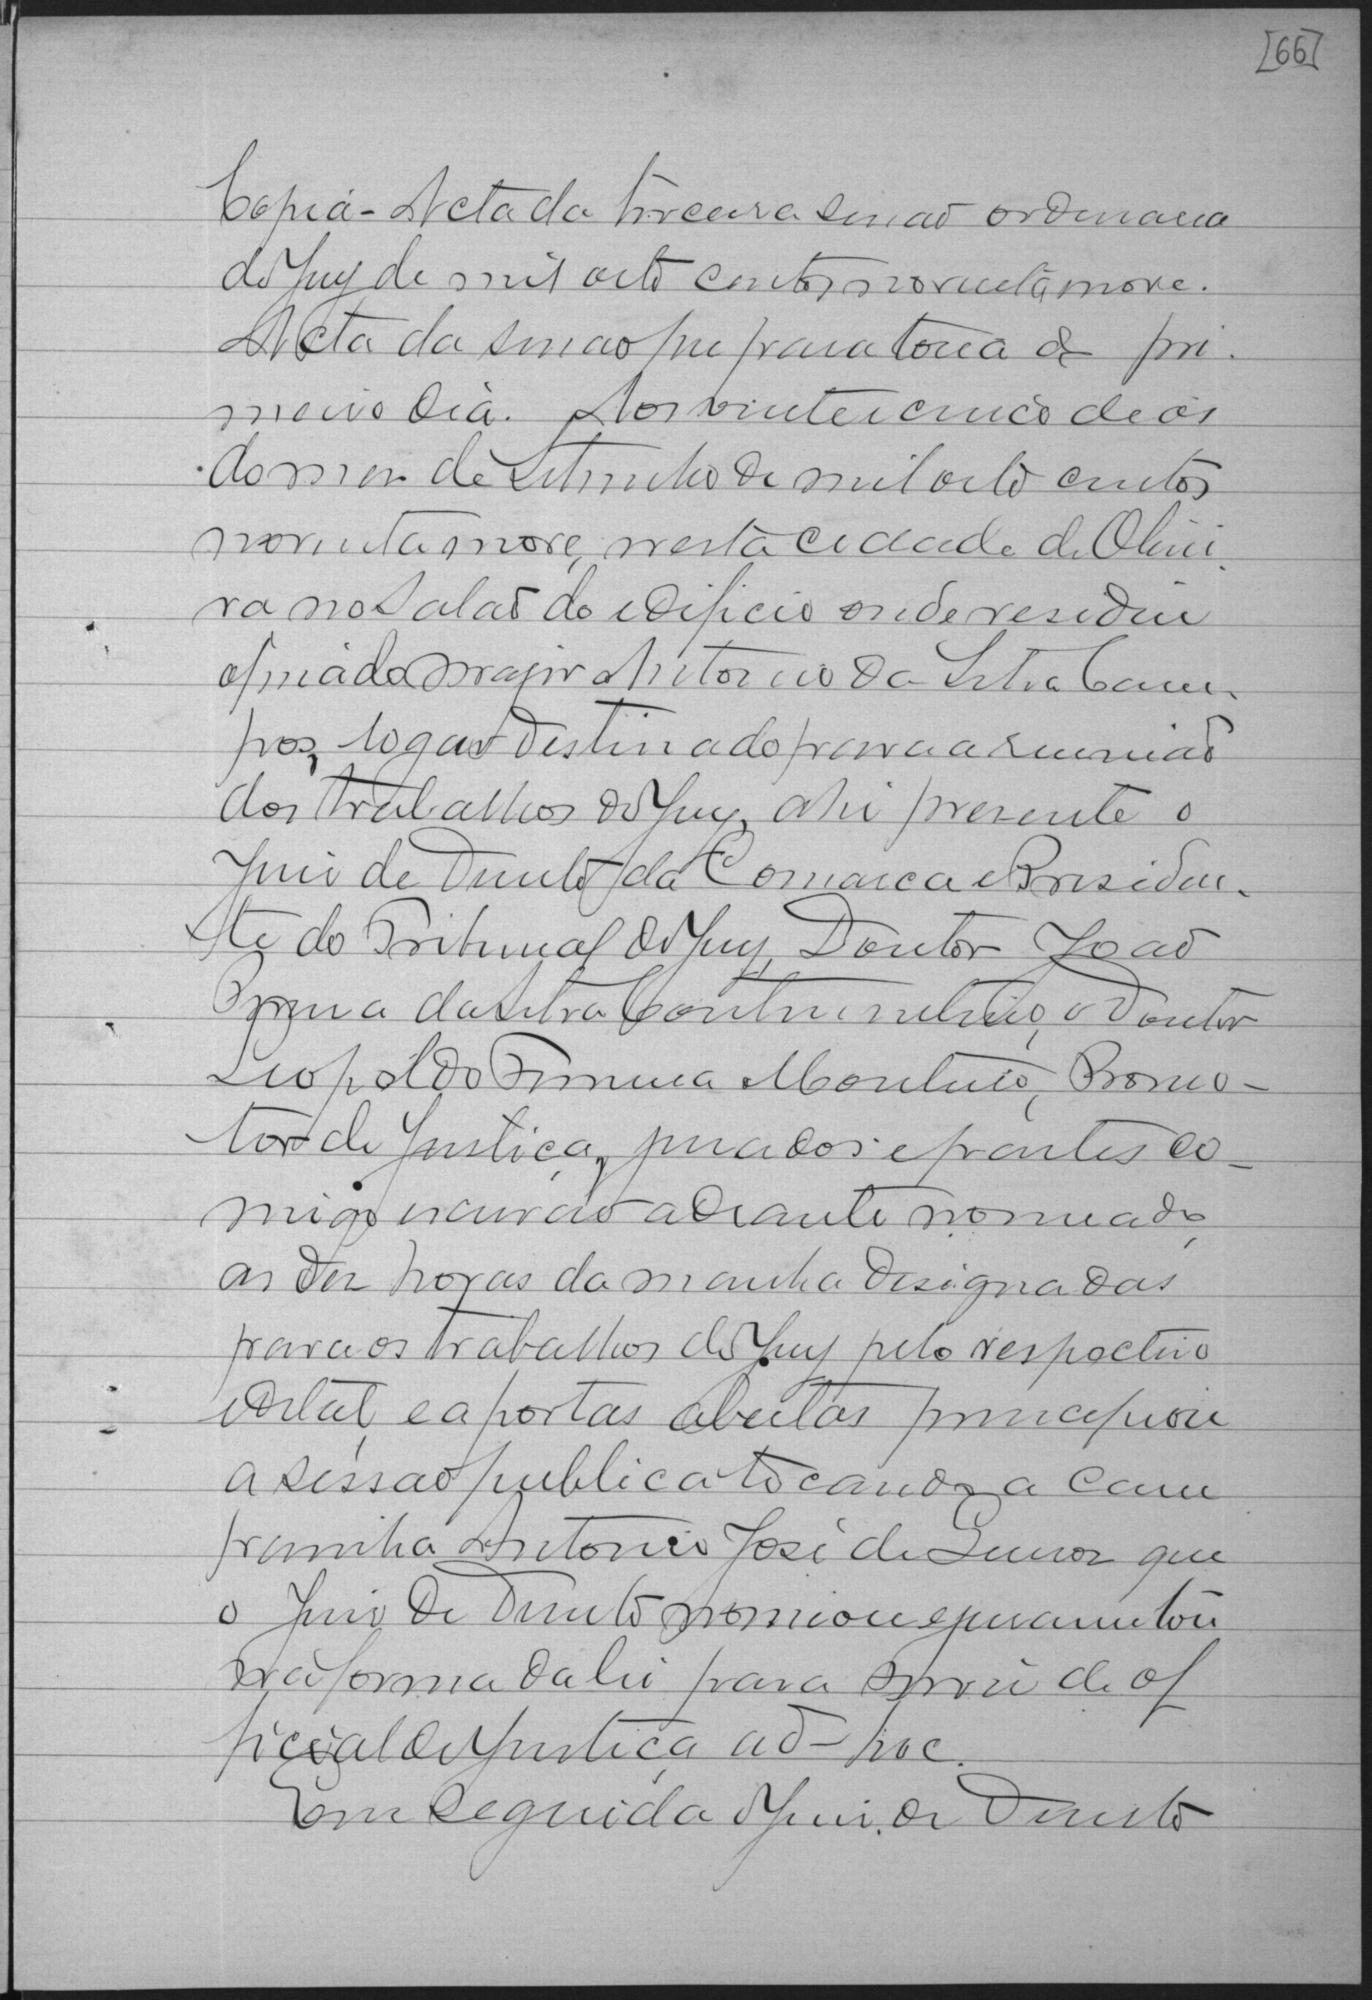 [66]
Copia - Acta da terceira sessaõ ordinaria
do Jury de mil oito centos noventa nove.
Acta da sessao preparatoria & pri-
meiro dia. Aos vinte e cinco dias
do mez de Setembro de mil oito centos
noventa nove, nesta cidade de Olivei
ra no Salaõ do edificio onde residiu
o finado major Antonio da Silva Cam-
pos, logar destinado para a reuniaõ
dos trabalhos do Jury, ahi presente o
Juiz de Direito da Comarca e Presiden-
te do Tribunal do Jury, Doutor Joaõ
da Silva o Doutor
Leopoldo Ferreira Monteiro, Promo-
tor de Justiça, jurados e partes co-
migo escrivaõ adiante nomeado,
as dez horas da manha designadas
para os trabalhos do Jury pelo respectivo
edital, e a portas abertas principiou
a sessao publica tocando a cam
painha Antonio José de que
o Juiz de Direito nomeou e juramentou
na forma da lei para servir de of
ficial de Justiça ad-hoc.
Em seguida o Juiz de Direito